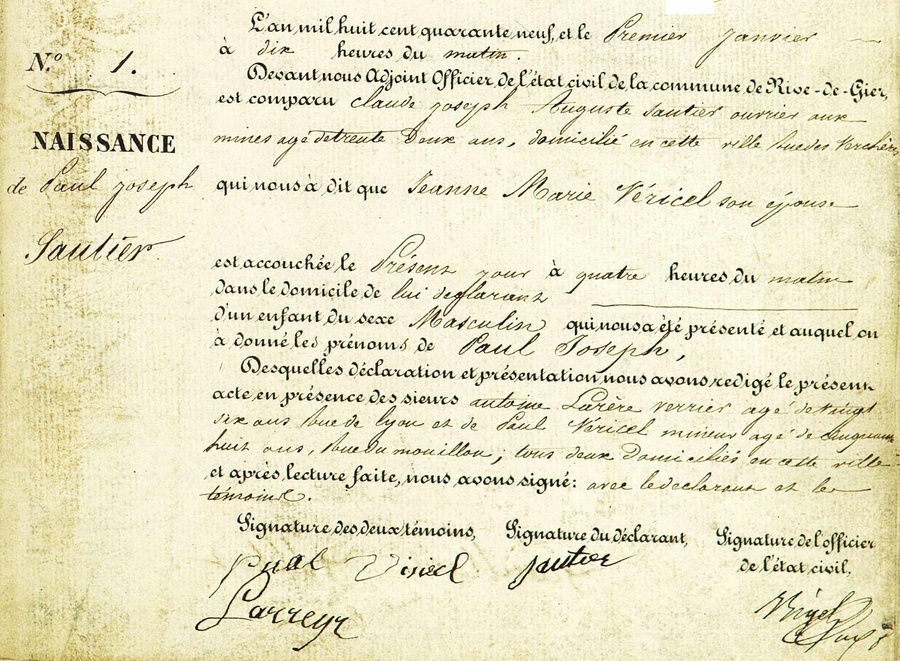 N.º 1.
NAISSANCE
de Paul joseph
Sautier.
L'an mil huit cent quarante neuf, et le Premier janvier
à dix heures du matin.
Devant nous Adjoint Officier de l'état civil de la commune de Rive-de-Gier,
est comparu claude joseph Auguste Sautier ouvrier aux
mines agé de trente Deux ans, domicilié en cette ville Rue des Verchères
qui nous à dit que Jeanne Marie Véricel son épouse
est accouchée le Présent jour à quatre heures du matin
dans le domicile de lui déclarant
d'un enfant du sexe Masculin qui nous a été présenté et auquel on
à donné les prénoms de Paul Joseph,
Desquelles déclaration et présentation, nous avons redigé le présent
acte, en présence des sieurs antoine Larère verrier agé de vingt
six ans Rue de lyon et de Paul Vericel mineur agé de cinquante
huit ans, Rue du mouillon; tous deux Domiciliés en cette ville
et après lecture faite, nous avons signé: avec le declarant et les
témoins.
Signature des deux témoins, Signature du déclarant, Signature de l'officier
de l'état civil,
Sautier
Larreyr